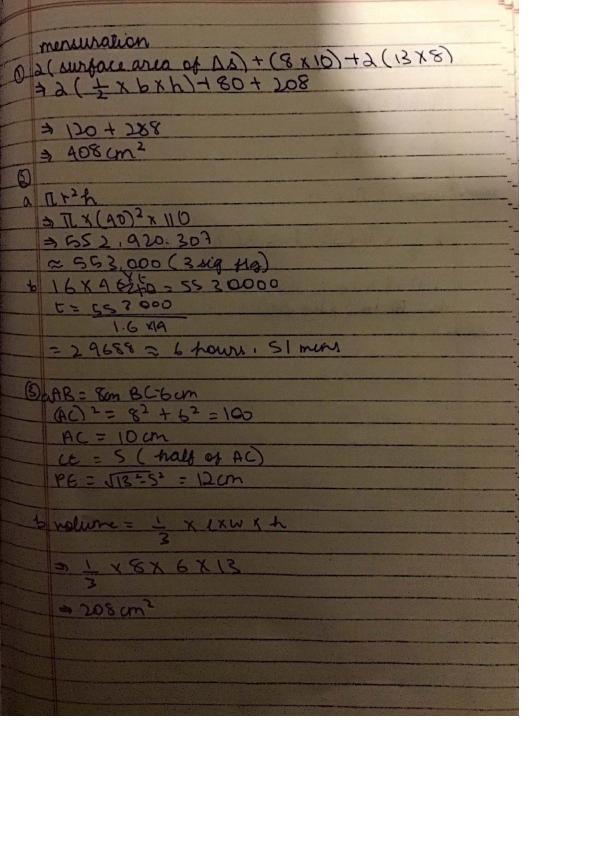 mensuration
① 2(surface area of Δs) + (8 x 10) + 2(13 x 8)
⇒ 2(1/2 x b x h) + 80 + 208
⇒ 120 + 288
⇒ 408 cm²
②
a πr²h
⇒ π x (40)² x 110
⇒ 552,920.307
≈ 553,000 (3 sig fig)
b
t = 553000
1.6 x 14
= 29688 ≈ 6 hours, 51 mins
③ a AB = 8cm BC = 6cm
(AC)² = 8² + 6² = 100
AC = 10 cm
CE = 5 (half of AC)
PE = √13²-5² = 12cm
b volume = 1/3 x l x w x h
⇒ 1/3 x 8 x 6 x 13
⇒ 208 cm²